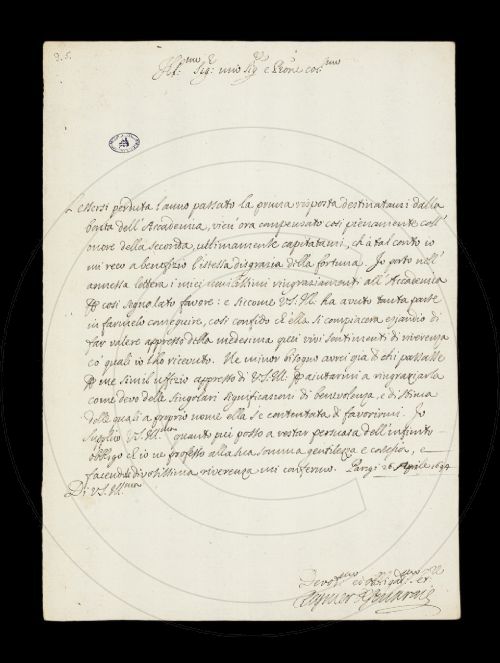 9.5.
Ill.mo Sig.r mio Sig.r e Prone Col.mo
L'essersi perduta l'anno passato la prima risposta destinatami dalla
bontà dell'Accademia, vien' ora compensato così pienamente coll'
onore della seconda, ultimamente capitatami, ch'à tal conto io
mi reco a benefizio l'istessa disgrazia della fortuna. Io porto nell'
annessa lettera i miei umilissimi ringraziamenti all'Accademia
P così segnalato favore: e siccome V.S.Ill. ha avuto tanta parte
in farmelo conseguire, così confido ch'ella si compiacerà eziandio di
far valere appresso della medesima quei vivi sentimenti di riverenza
co' quali io l'ho ricevuto. Ne minor bisogno avrei già di chi passasse
P me simil uffizio appresso di V.S.Ill. P aiutarmi a ringraziarla
come devo delle singolari significazioni di benevolenza, e di stima
delle quali a proprio nome ella si è contentata di favorirmi. Io
supplico V.S.Ill.ma quanto più posso a restar persuasa dell'infinito
obbligo ch'io ne professo alla sua somma gentilezza e cortesia, e
facendole divotissima riverenza mi confermo. Parigi 26 Aprile 1699
Di V.S.Ill.ma
Devot.mo ed obbligat.mo